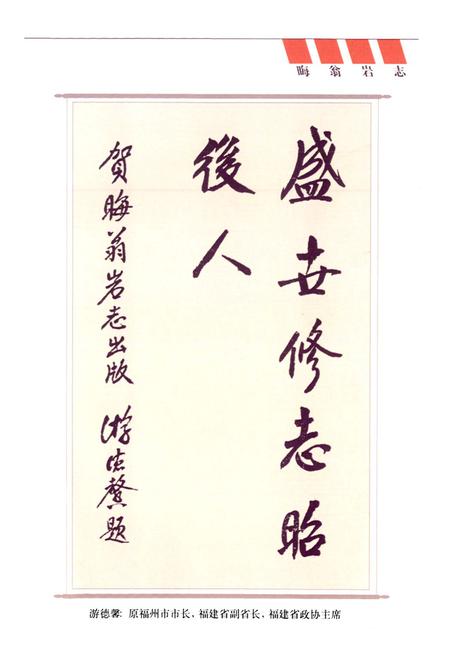 晦翁岩志
盛世修志昭
後人
贺晦翁岩志出版 游德馨题
游德馨:原福州市市长,福建省副省长,福建省政协主席